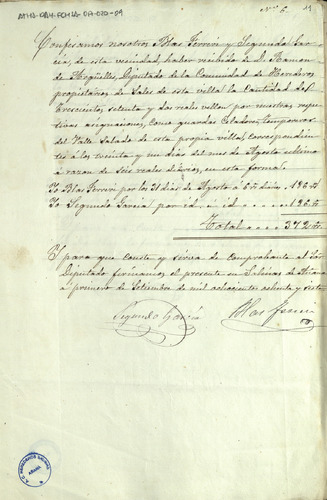 ATHA-DAH-FCHLA-OA-070-09
Nº 6. 19
Confesamos nosotros Blas Ferreri y Segundo Gar-
cia, de esta vecindad, haber recibido de D. Ramon
de Argüelles, Diputado de la Comunidad de Herederos
propietarios de Sales de esta villa la cantidad de
trescientos setenta y dos reales vellon por nuestras respec
tivas asignaciones, como guardas Celadores temporeros
del Valle Salado de esta propia villa, correspondien-
tes á los treinta y un dias del mes de Agosto ultimo
á razon de seis reales diarios, en esta forma.
Yo Blas Ferreri por los 31 dias de Agosto á 6 rs. diarios 186 rs
Yo Segundo Garcia por id. id. 186 rs
Total 372 rs.
Y para que conste y sirva de comprobante al Sor
Diputado firmamos el presente en Salinas de Añana
á primero de Setiembre de mil ochocientos ochenta y siete
Segundo Garcia Blas Ferreri